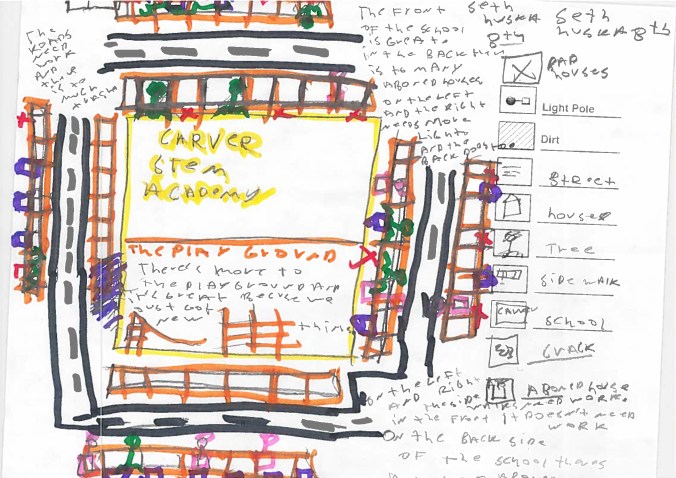 The
ROADS
NEED
WORK
AND
is to
much
trash
The FRONT
OF the school
is great to
in the BACK
is to MANY
ABORED houses
on the left
AND the Right
NEEDS MORE
Lights
AND the
BACK
Seth
HUSKA
8th
Seth
HUSKA 8th
CARVER
STEM
ACADEMY
The PLAY GROUND
There's more to
the PLAYGROUND AND
it's great Because we
Just got
new
things
BAD
houses
Light Pole
Dirt
street
houses
Tree
side walk
CARVER
school
CRACK
ABORED house
on the left
AND Right
the side walks need work.
in the front it Doesn't need
work
on the BACK side
OF the school theres